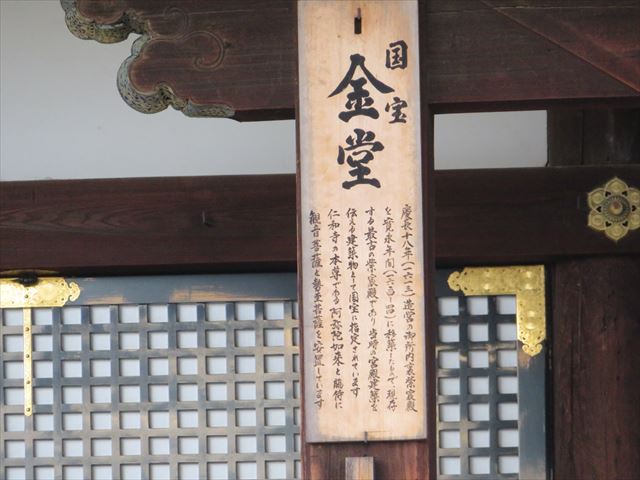 国宝
金堂
慶長十八年(一六一三)造営の御所内裏紫宸殿
を寛永年間(一六二四〜四三)に移築したもので、現存
する最古の紫宸殿であり、当時の宮殿建築を
伝える建築物として国宝に指定されています
仁和寺の本尊である阿弥陀如来と脇侍に
観音菩薩と勢至菩薩を安置しています